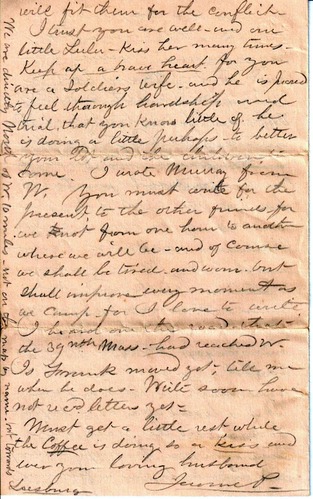 will fit them for the conflict
I trust you are well - and our
little Lulu - Kiss her many times -
Keep up a brave heart. for you
are a Soldiers wife - and he is proud
to feel through hardships and
trial, that you know little of, he
is doing a little perhaps - to better
your lot, and the children,
some. I wrote Murray from
W. You must write for the
present to the other friends, for
we not from one hour to another
where we will be - and of course
we shall be tired and worn - but
shall improve every moment as
we camp - for I love to write.
I heard on the road that
the 39th Mass - had reached W.
Is moved yet - tell me
when he does - Write soon have
not recd letters yet -
Must get a little rest while
the Coffee is doing so a kiss and
ever your loving husband
We are directly North of W. 10 miles not on the map by name but towards
Leesburg